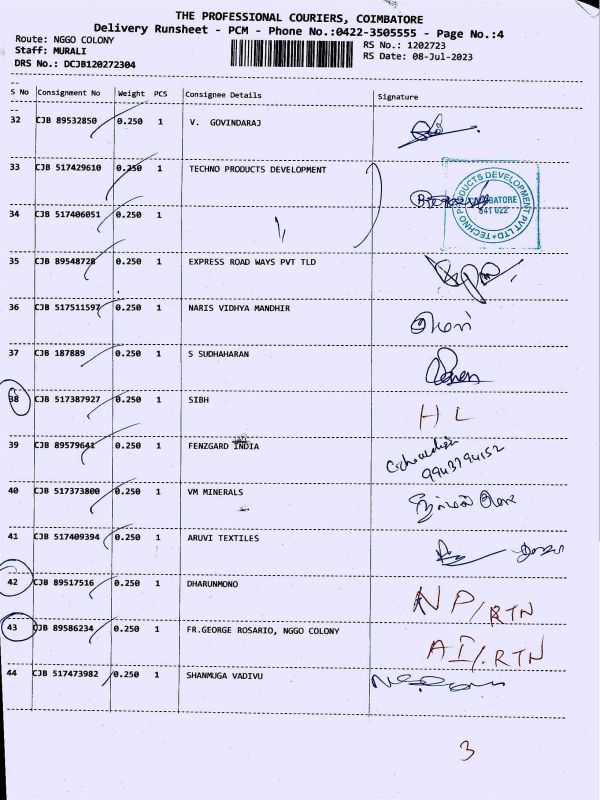 THE PROFESSIONAL COURIERS, COIMBATORE
Delivery Runsheet - PCM - Phone No.:0422-3505555 - Page No.:4
Route: NGGO COLONY RS No.: 1202723
Staff: MURALI RS Date: 08-Jul-2023
DRS No.: DCJB120272304
S No Consignment No Weight PCS Consignee Details Signature
32 CJB 89532850 0.250 1 V. GOVINDARAJ
33 CJB 517429610 0.250 1 TECHNO PRODUCTS DEVELOPMENT
TECHNO PRODUCTS DEVELOPMENT PVT LTD
COIMBATORE
641 022
34 CJB 517406051 0.250 1
35 CJB 89548728 0.250 1 EXPRESS ROAD WAYS PVT TLD
36 CJB 517511597 0.250 1 NARIS VIDHYA MANDHIR
37 CJB 187889 0.250 1 S SUDHAHARAN
38 CJB 517387927 0.250 1 SIBH H L
39 CJB 89579641 0.250 1 FENZGARD INDIA
9943794152
40 CJB 517373800 0.250 1 VM MINERALS
41 CJB 517409394 0.250 1 ARUVI TEXTILES
42 CJB 89517516 0.250 1 DHARUNMONO NP/RTN
43 CJB 89586234 0.250 1 FR.GEORGE ROSARIO, NGGO COLONY AI/.RTN
44 CJB 517473982 0.250 1 SHANMUGA VADIVU
3